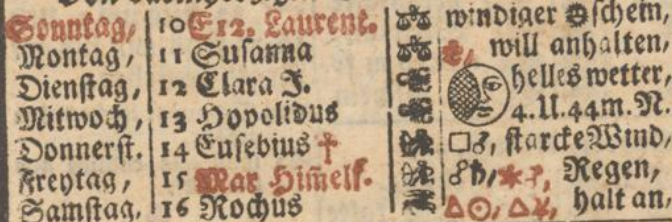 Sonntag, 10 E12. Laurent. windiger ☼schein,
Montag, 11 Susanna will anhalten,
Dienstag, 12 Clara J. helles wetter,
Mitwoch, 13 Hopolidus 4. U. 44m. N.
Donnerst. 14 Eusebius † □♂, starcke Wind,
Freytag, 15 Mar Him̃elf. ☍♄, Regen,
Samstag, 16 Rochus △☉, halt an